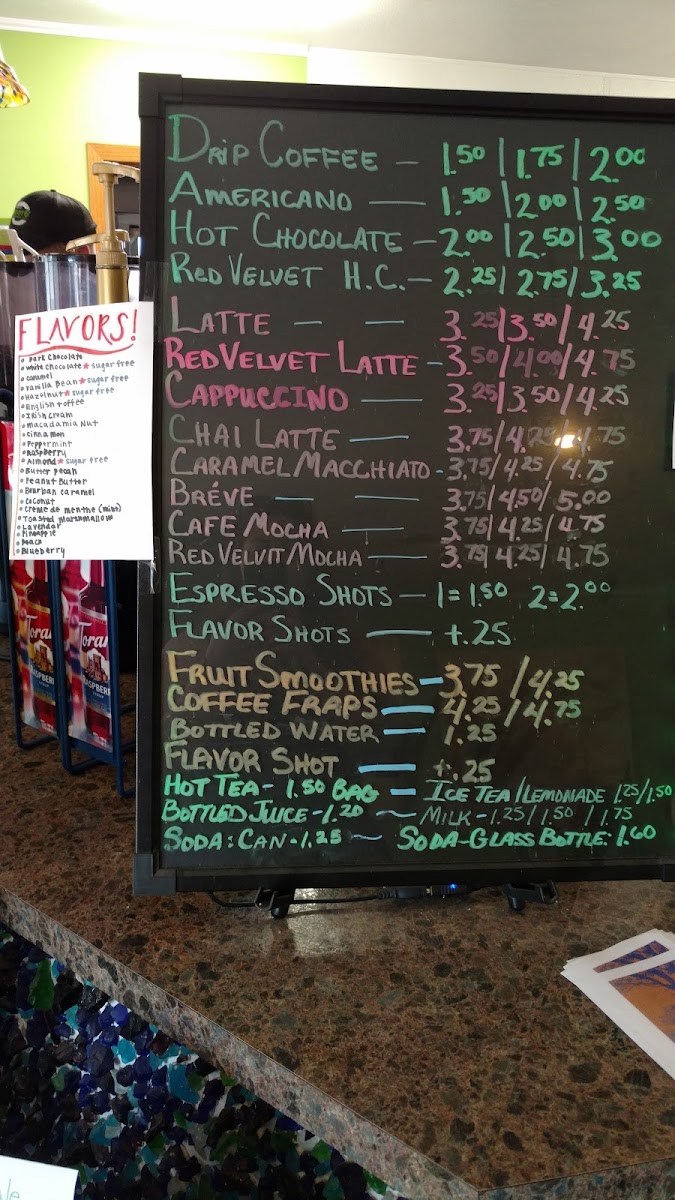 DRIP COFFEE — 1.50 | 1.75 | 2.00
AMERICANO — 1.50 | 2.00 | 2.50
HOT CHOCOLATE — 2.00 | 2.50 | 3.00
RED VELVET H.C. — 2.25 | 2.75 | 3.25
LATTE — — 3.25 / 3.50 / 4.25
RED VELVET LATTE - 3.50 / 4.00 / 4.75
CAPPUCCINO — 3.25 / 3.50 / 4.25
CHAI LATTE — 3.75 / 4.25 / 4.75
CARAMEL MACCHIATO - 3.75 / 4.25 / 4.75
BRÉVE — — 3.75 / 4.50 / 5.00
CAFE MOCHA — 3.75 / 4.25 / 4.75
RED VELVIT MOCHA — 3.75 / 4.25 / 4.75
ESPRESSO SHOTS — 1 = 1.50 2 = 2.00
FLAVOR SHOTS — +.25
FRUIT SMOOTHIES — 3.75 / 4.25
COFFEE FRAPS — 4.25 / 4.75
BOTTLED WATER — 1.25
FLAVOR SHOT — +.25
HOT TEA - 1.50 BAG — ICE TEA / LEMONADE 1.25 / 1.50
BOTTLED JUICE - 1.20 ~ MILK - 1.25 / 1.50 / 1.75
SODA: CAN - 1.25 ~ SODA - GLASS BOTTLE: 1.60
FLAVORS!
• Dark Chocolate
• white chocolate * sugar free
• caramel
• vanilla Bean * sugar free
• Hazelnut * sugar free
• English toffee
• Irish cream
• macadamia Nut
• cinnamon
• Peppermint
• Raspberry
• Almond * sugar free
• Butter pecan
• Peanut Butter
• Bourban caramel
• Coconut
• Creme de menthe (mint)
• Toasted Marshmallow
• Lavendar
• Pineapple
• Peach
• Blueberry
Toran
RASPBERRY